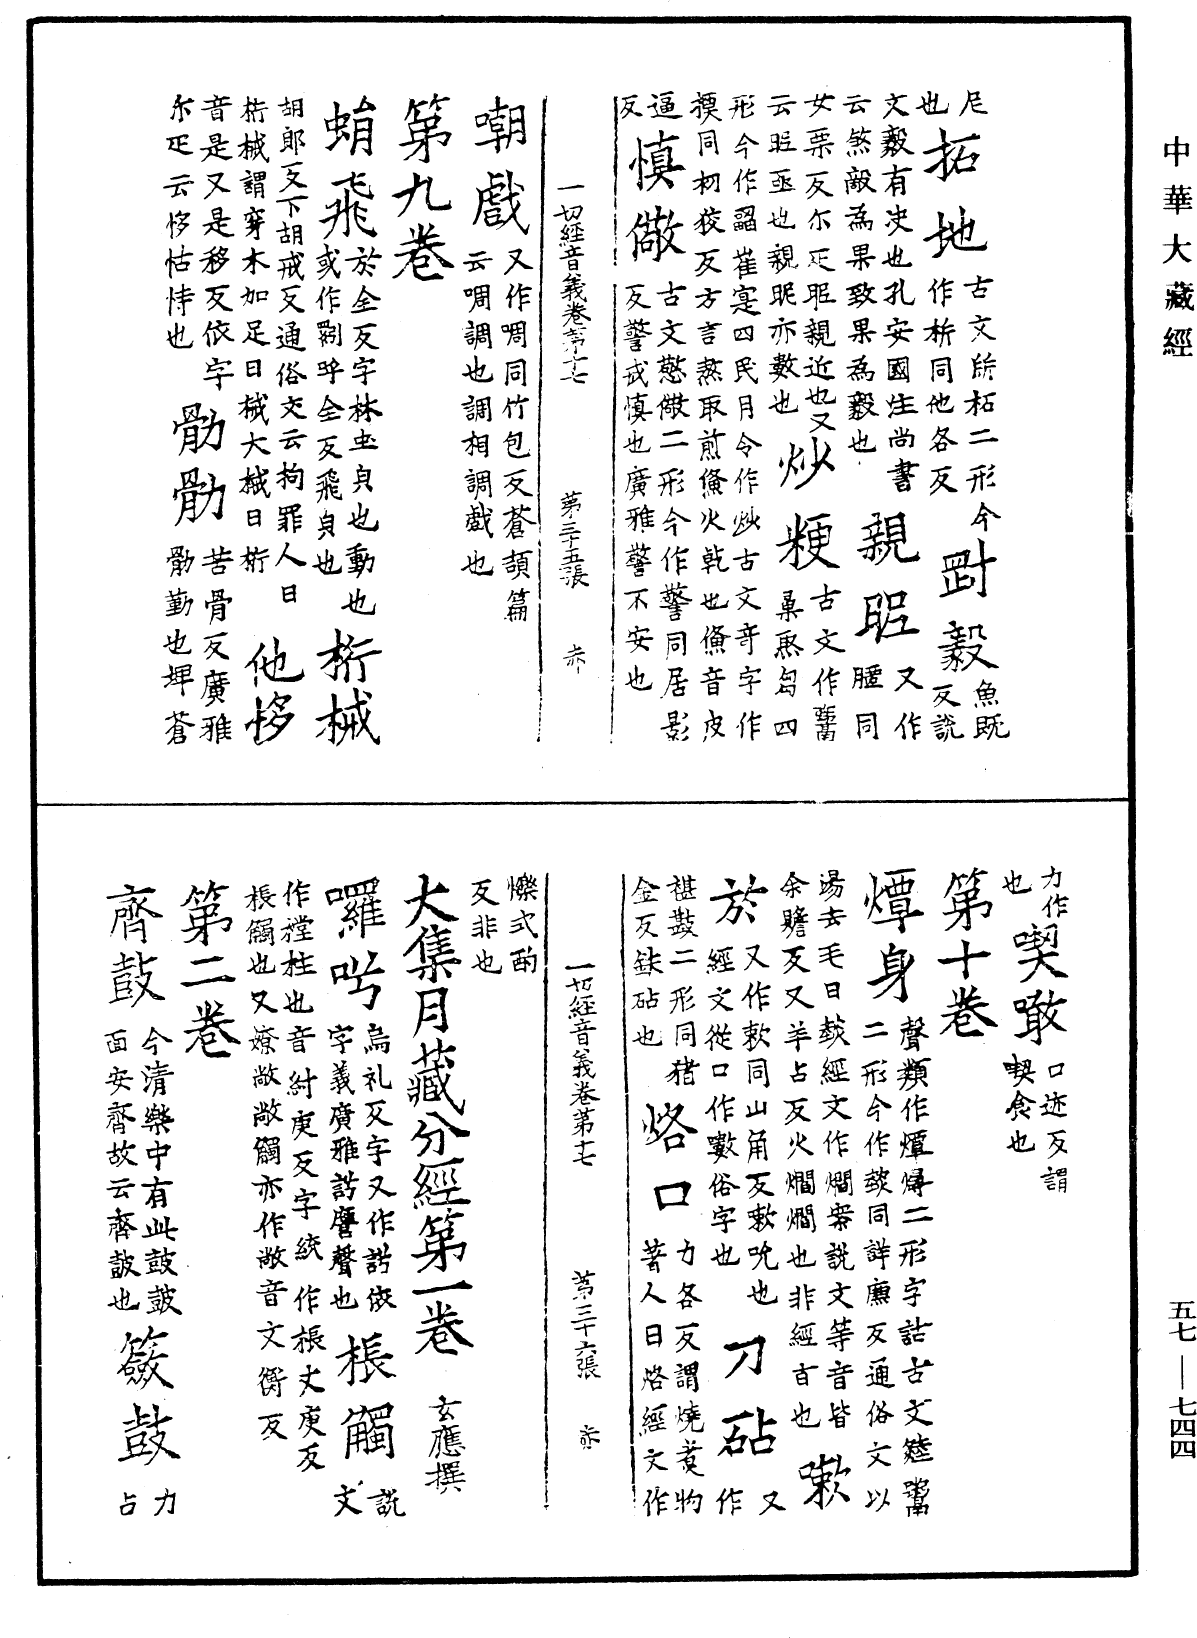 中華大藏經
尼
也 拓地 古文𢪎柘二形今
作𣂪同他各反 㓸毅 魚既
反說
文毅有决也孔安國注尚書
云煞敵為果致果為毅也 親昵 又作
䁥同
女栗反尒疋昵親近也又
云昵亟也親昵亦數也 炒粳 古文作䰞
㷅𤈦㷌四
形今作䎻崔寔四民月令作炒古文竒字作
𢳃同初狡反方言熬取煎僃火乹也僃音皮
逼
反 慎儆 古文憼儆二形今作警同居影
反警戒慎也廣雅警不安也
一切經音義卷第十七 第三十五張 赤
嘲戲 又作啁同竹包反蒼頡篇
云啁調也調相調戲也
第九卷
蜎飛 於全反字林虫皃也動也
或作𧍢呼全反飛皃也 桁械
胡郎反下胡戒反通俗文云拘罪人曰
桁械謂穿木加足曰械大械曰桁 他恀
音是又是移反依字
尒疋云恀怙恃也 勩勩 苦骨反廣雅
勩勤也埤蒼
力作
也 喫噉 口迹反謂
喫食也
第十卷
燖身 聲類作燂㷟二形字詁古文䥎䰞
二形今作㷟同詳廉反通俗文以
湯去毛曰㷟經文作爓案說文等音皆
余贍反又羊占反火爓爓也非經旨也 嗽
於 又
作
又作欶同山角反欶吮也
經文從口作數俗字也 刀砧 又
作
椹㪣二形同猪
金反鈇砧也 烙口 力各反謂燒煑物
著人曰烙經文作
一切經音義卷第十七 第三十六張 赤
爍式酌
反非也
大集月藏分經第一卷 玄應撰
囉吇 烏礼反字又作䛠依
字義廣雅䛠譍聲也 棖觸 說
文
作樘柱也音紂庚反字統作棖丈庚反
棖觸也又嫽敞敞觸亦作敞音文衡反
第二卷
齊鼓 今清樂中有此鼓鼓
面安齊故云齊鼓也 簸鼓 力
占
五七—七四四